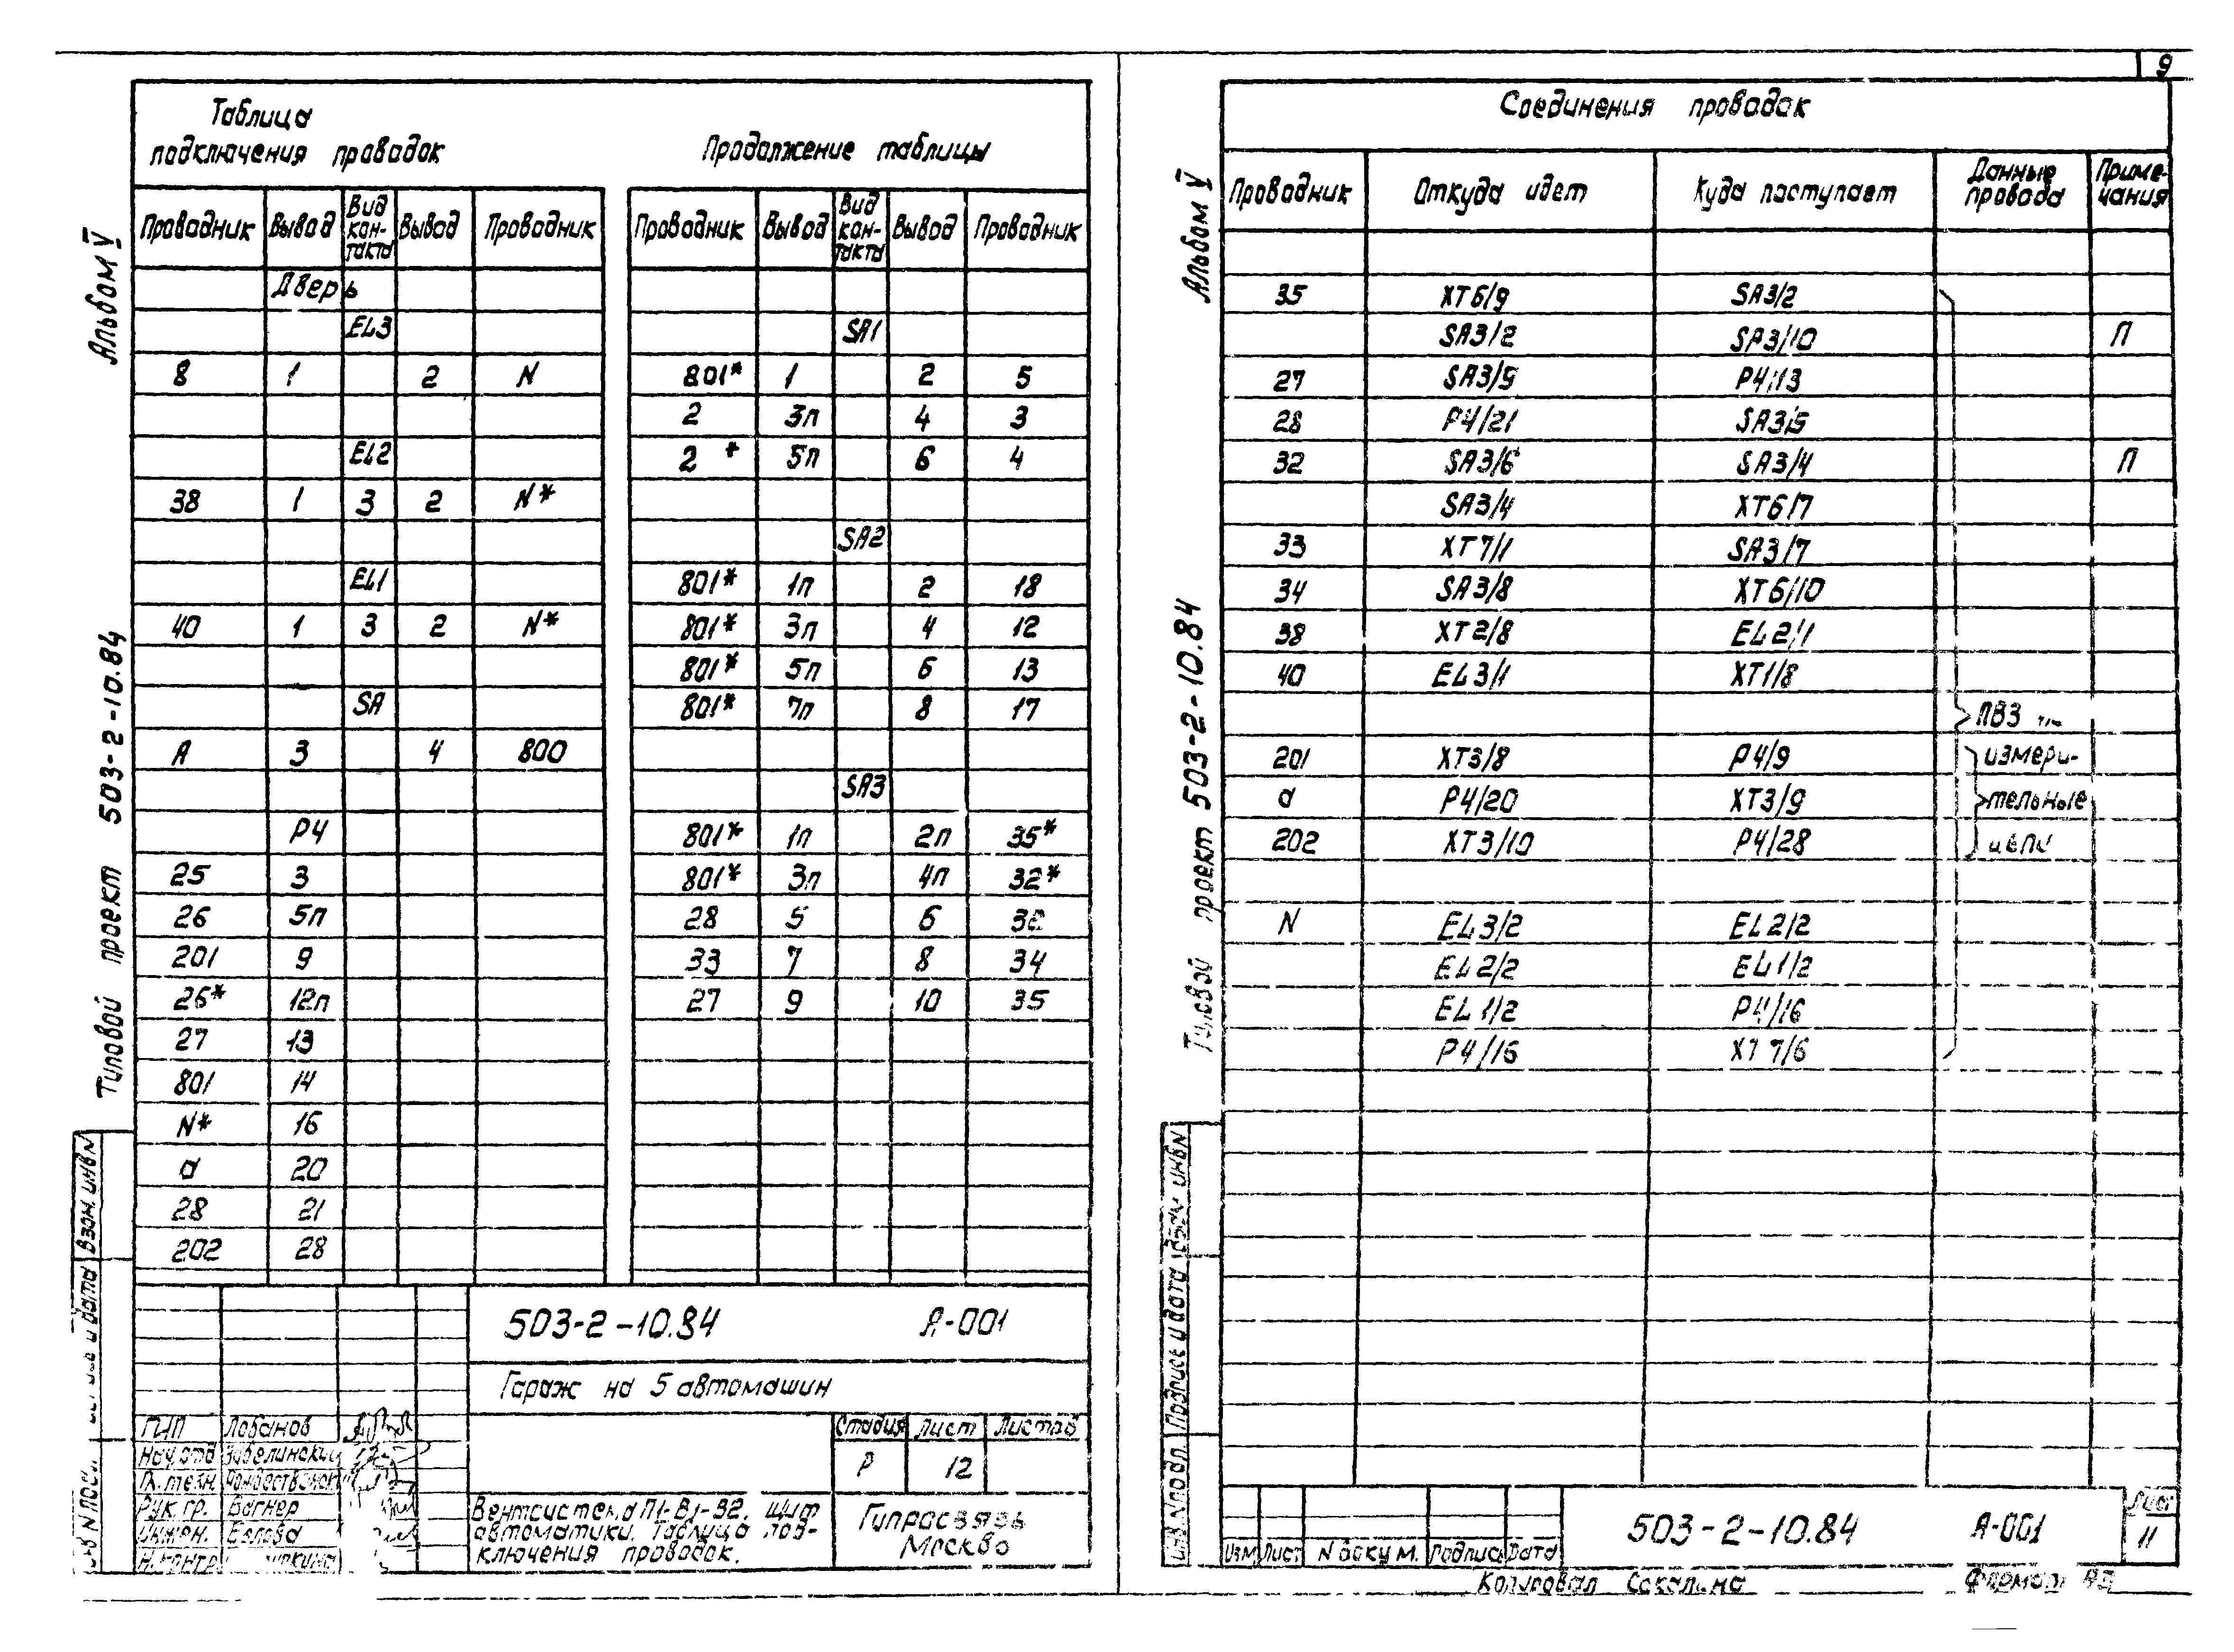 9
Альбом V
Типовой проект 503-2-10.84
Таблица
подключения проводок
Продолжение таблицы
Проводник Вывод Вид кон-такта Вывод Проводник
Дверь
EL3
8 1 2 N
EL2
38 1 3 2 N*
EL1
40 1 3 2 N*
SA
A 3 4 800
P4
25 3
26 5п
201 9
26* 12п
27 13
801 14
N* 16
а 20
28 21
202 28
Проводник Вывод Вид кон-такта Вывод Проводник
SA1
801* 1 2 5
2 3п 4 3
2 * 5п 6 4
SA2
801* 1п 2 18
801* 3п 4 12
801* 5п 6 13
801* 7п 8 17
SA3
801* 1п 2п 35*
801* 3п 4п 32*
28 5 6
33 7 8 34
27 9 10 35
Взам. инв N
503-2-10.84 А-001
Гараж на 5 автомашин
ГИП Лобанов
Нач. отд
Гл. техн.
Рук. гр. Вагнер
Инжен. Белова
Н. контр
Стадия Лист Листов
Р 12
Вентсистема П1-В1-В2. Щит
автоматики. Таблица под-
ключения проводок.
Гипросвязь
Москва
Альбом V
Типовой проект 503-2-10.84
Соединения проводок
Проводник Откуда идет Куда поступает Данные провода Приме-чания
35 XT6/9 SA3/2
SA3/2 SA3/10 П
27 SA3/9 P4/13
28 P4/21 SA3/5
32 SA3/6 SA3/4 П
SA3/4 XT6/7
33 XT7/1 SA3/7
34 SA3/8 XT6/10
38 XT2/8 EL2/1
40 EL3/1 XT1/8
ПВ3
201 XT3/8 P4/9 измери-
а P4/20 XT3/9 тельные
202 XT3/10 P4/28 цепи
N EL3/2 EL2/2
EL2/2 EL1/2
EL1/2 P4/16
P4/16 XT7/6
Инв N подл. Подпись и дата Взам инв N
Изм Лист N докум. Подпись Дата
503-2-10.84 А-001
Лист
11
Копировал Соколина
Формат А3